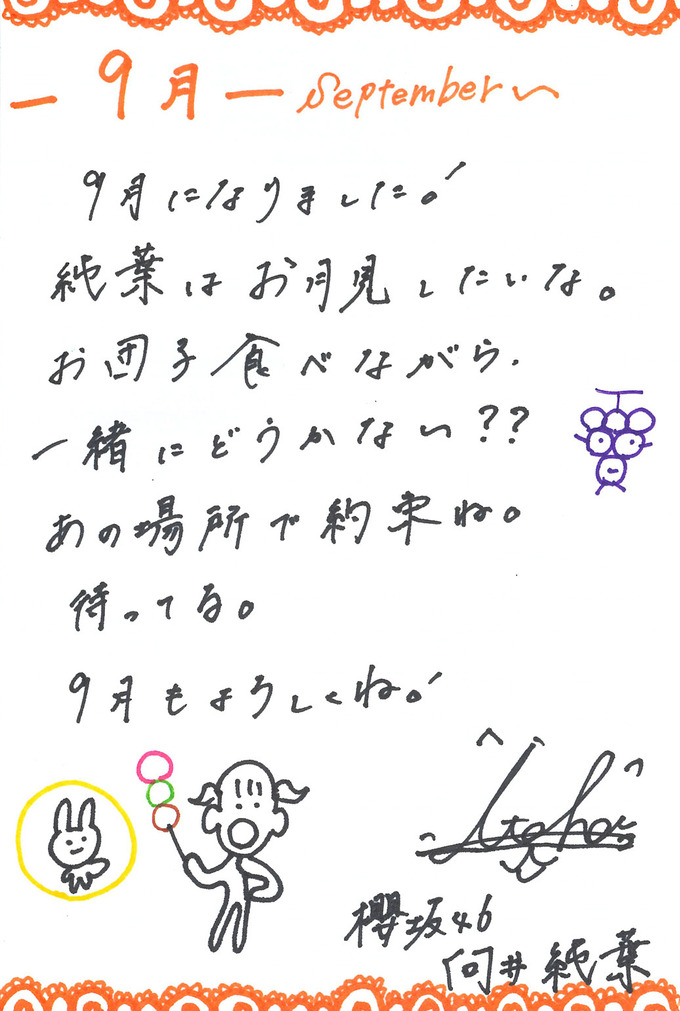 ー 9月 ー September～
9月になりました。!
純葉はお月見したいな。
お団子食べながら、
一緒にどうかない??
あの場所で約束ね。
待ってる。
9月もよろしくね。!
Itoha
櫻坂46
向井純葉